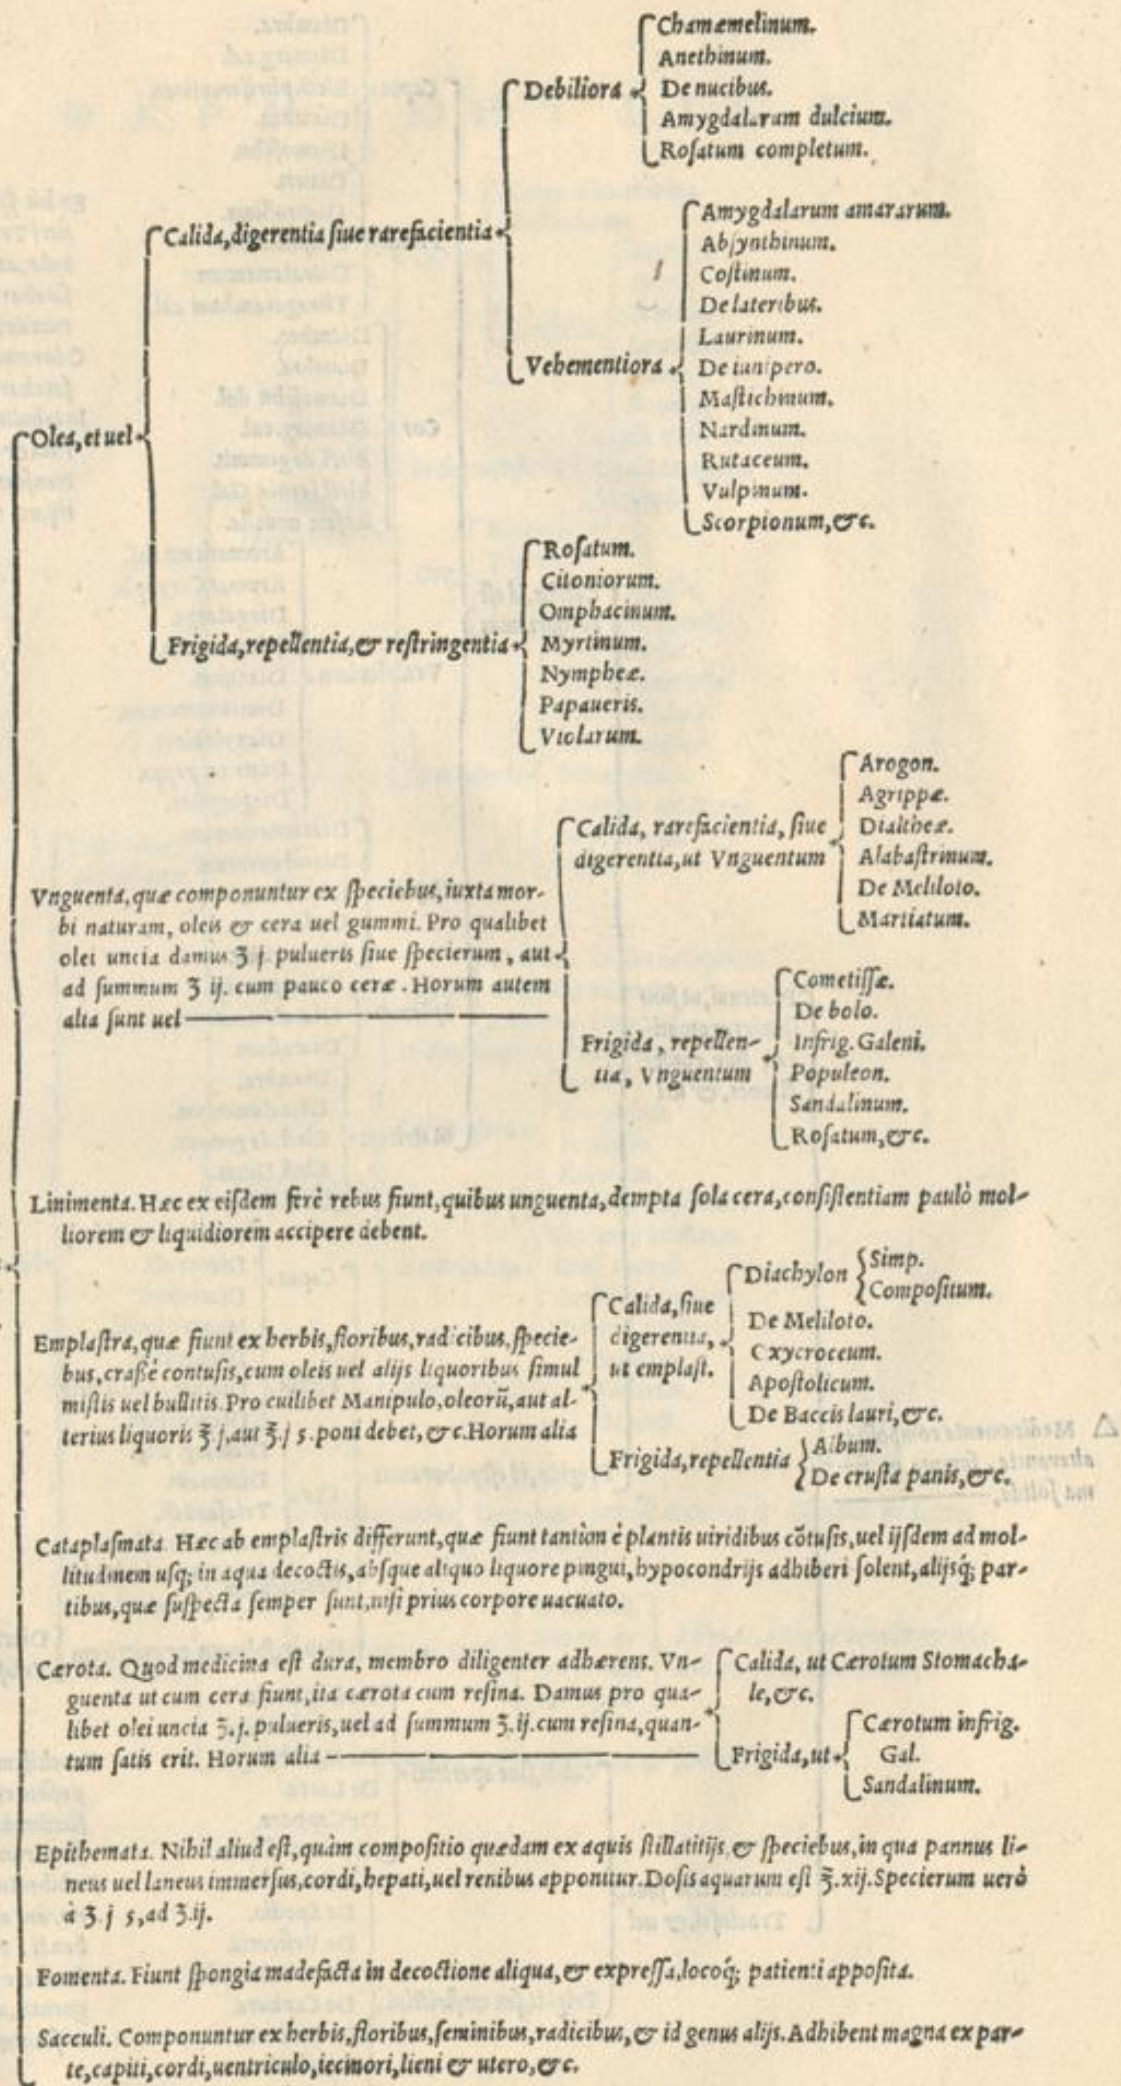 Chamæmelinum.
Anethinum.
Debiliora
De nucibus.
Amygdalarum dulcium.
Roſatum completum.
Calida, digerentia ſiue rarefacientia
Amygdalarum amararum.
Abſynthinum.
Coſtinum.
De lateribus.
Laurinum.
Vehementiora
De iunipero.
Maſtichinum.
Nardinum.
Rutaceum.
Vulpinum.
Scorpionum, &c.
Olea, et uel
Roſatum.
Citoniorum.
Omphacinum.
Frigida, repellentia, & reſtringentia
Myrtinum.
Nympheæ.
Papaueris.
Violarum.
Vnguenta, quæ componuntur ex ſpeciebus, iuxta mor-
bi naturam, oleis & cera uel gummi. Pro qualibet
olei uncia damus ʒ j. pulueris ſiue ſpecierum, aut
ad ſummum ʒ ij. cum pauco ceræ. Horum autem
alia ſunt uel
Calida, rarefacientia, ſiue
digerentia, ut Vnguentum
Arogon.
Agrippæ.
Dialtheæ.
Alabaſtrinum.
De Meliloto.
Martiatum.
Frigida, repellen-
tia, Vnguentum
Cometiſſæ.
De bolo.
Infrig. Galeni.
Populeon.
Sandalinum.
Roſatum, &c.
Linimenta. Hæc ex eiſdem ferè rebus fiunt, quibus unguenta, dempta ſola cera, conſiſtentiam paulò mol-
liorem & liquidiorem accipere debent.
Emplaſtra, quæ fiunt ex herbis, floribus, radicibus, ſpecie-
bus, craſsè contuſis, cum oleis uel alijs liquoribus ſimul
miſtis uel bullitis. Pro cuilibet Manipulo, oleorũ, aut al-
terius liquoris ℥ j, aut ℥. j s. poni debet, &c. Horum alia
Calida, ſiue
digerentia,
ut emplaſt.
Diachylon
Simp.
Compoſitum.
De Meliloto.
Oxycroceum.
Apoſtolicum.
De Baccis lauri, &c.
Frigida, repellentia
Album.
De cruſta panis, &c.
Cataplaſmata. Hæc ab emplaſtris differunt, quæ fiunt tantùm è plantis uiridibus cõtuſis, uel ijſdem ad mol-
litudinem uſq; in aqua decoctis, abſque aliquo liquore pingui, hypocondrijs adhiberi ſolent, alijsq́; par-
tibus, quæ ſuſpecta ſemper ſunt, niſi prius corpore uacuato.
Cærota. Quod medicina eſt dura, membro diligenter adhærens. Vn-
guenta ut cum cera fiunt, ita cærota cum reſina. Damus pro qua-
libet olei uncia ʒ. j. pulueris, uel ad ſummum ʒ. ij. cum reſina, quan-
tum ſatis erit. Horum alia
Calida, ut Cærotum Stomacha-
le, &c.
Frigida, ut
Cærotum infrig.
Gal.
Sandalinum.
Epithemata. Nihil aliud eſt, quàm compoſitio quædam ex aquis ſtillatitijs & ſpeciebus, in qua pannus li-
neus uel laneus immerſus, cordi, hepati, uel renibus apponitur. Doſis aquarum eſt ℥. xij. Specierum uerò
à ʒ. j s, ad ʒ. ij.
Fomenta. Fiunt ſpongia madefacta in decoctione aliqua, & expreſſa, locoq́; patienti appoſita.
Sacculi. Componuntur ex herbis, floribus, ſeminibus, radicibus, & id genus alijs. Adhibent magna ex par-
te, capiti, cordi, uentriculo, iecinori, lieni & utero, &c.